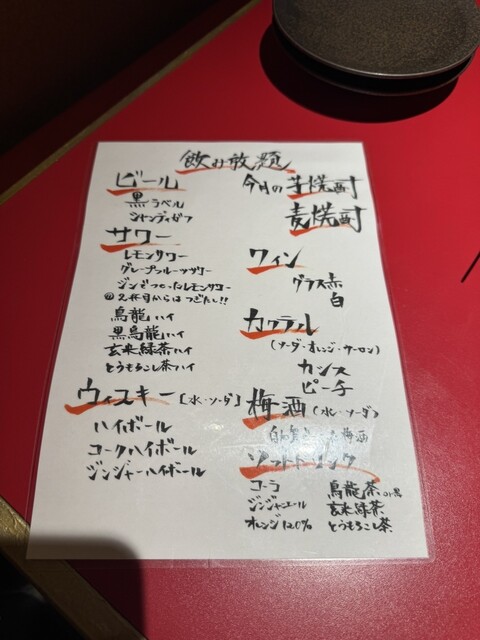 飲み放題
ビール
黒ラベル
シャンディガフ
サワー
レモンサワー
グレープフルーツサワー
ジンでつくったレモンサワー
2杯目からはつぎたし!!
烏龍ハイ
黒烏龍ハイ
玄米緑茶ハイ
とうもろこし茶ハイ
ウィスキー [水・ソーダ]
ハイボール
コークハイボール
ジンジャーハイボール
今月の芋焼酎
麦焼酎
ワイン
グラス赤
白
カクテル
(ソーダ・オレンジ・ウーロン)
カシス
ピーチ
梅酒 (水・ソーダ)
梅酒
ソフトドリンク
コーラ
ジンジャエール
オレンジ120%
烏龍茶
玄米緑茶
とうもろこし茶